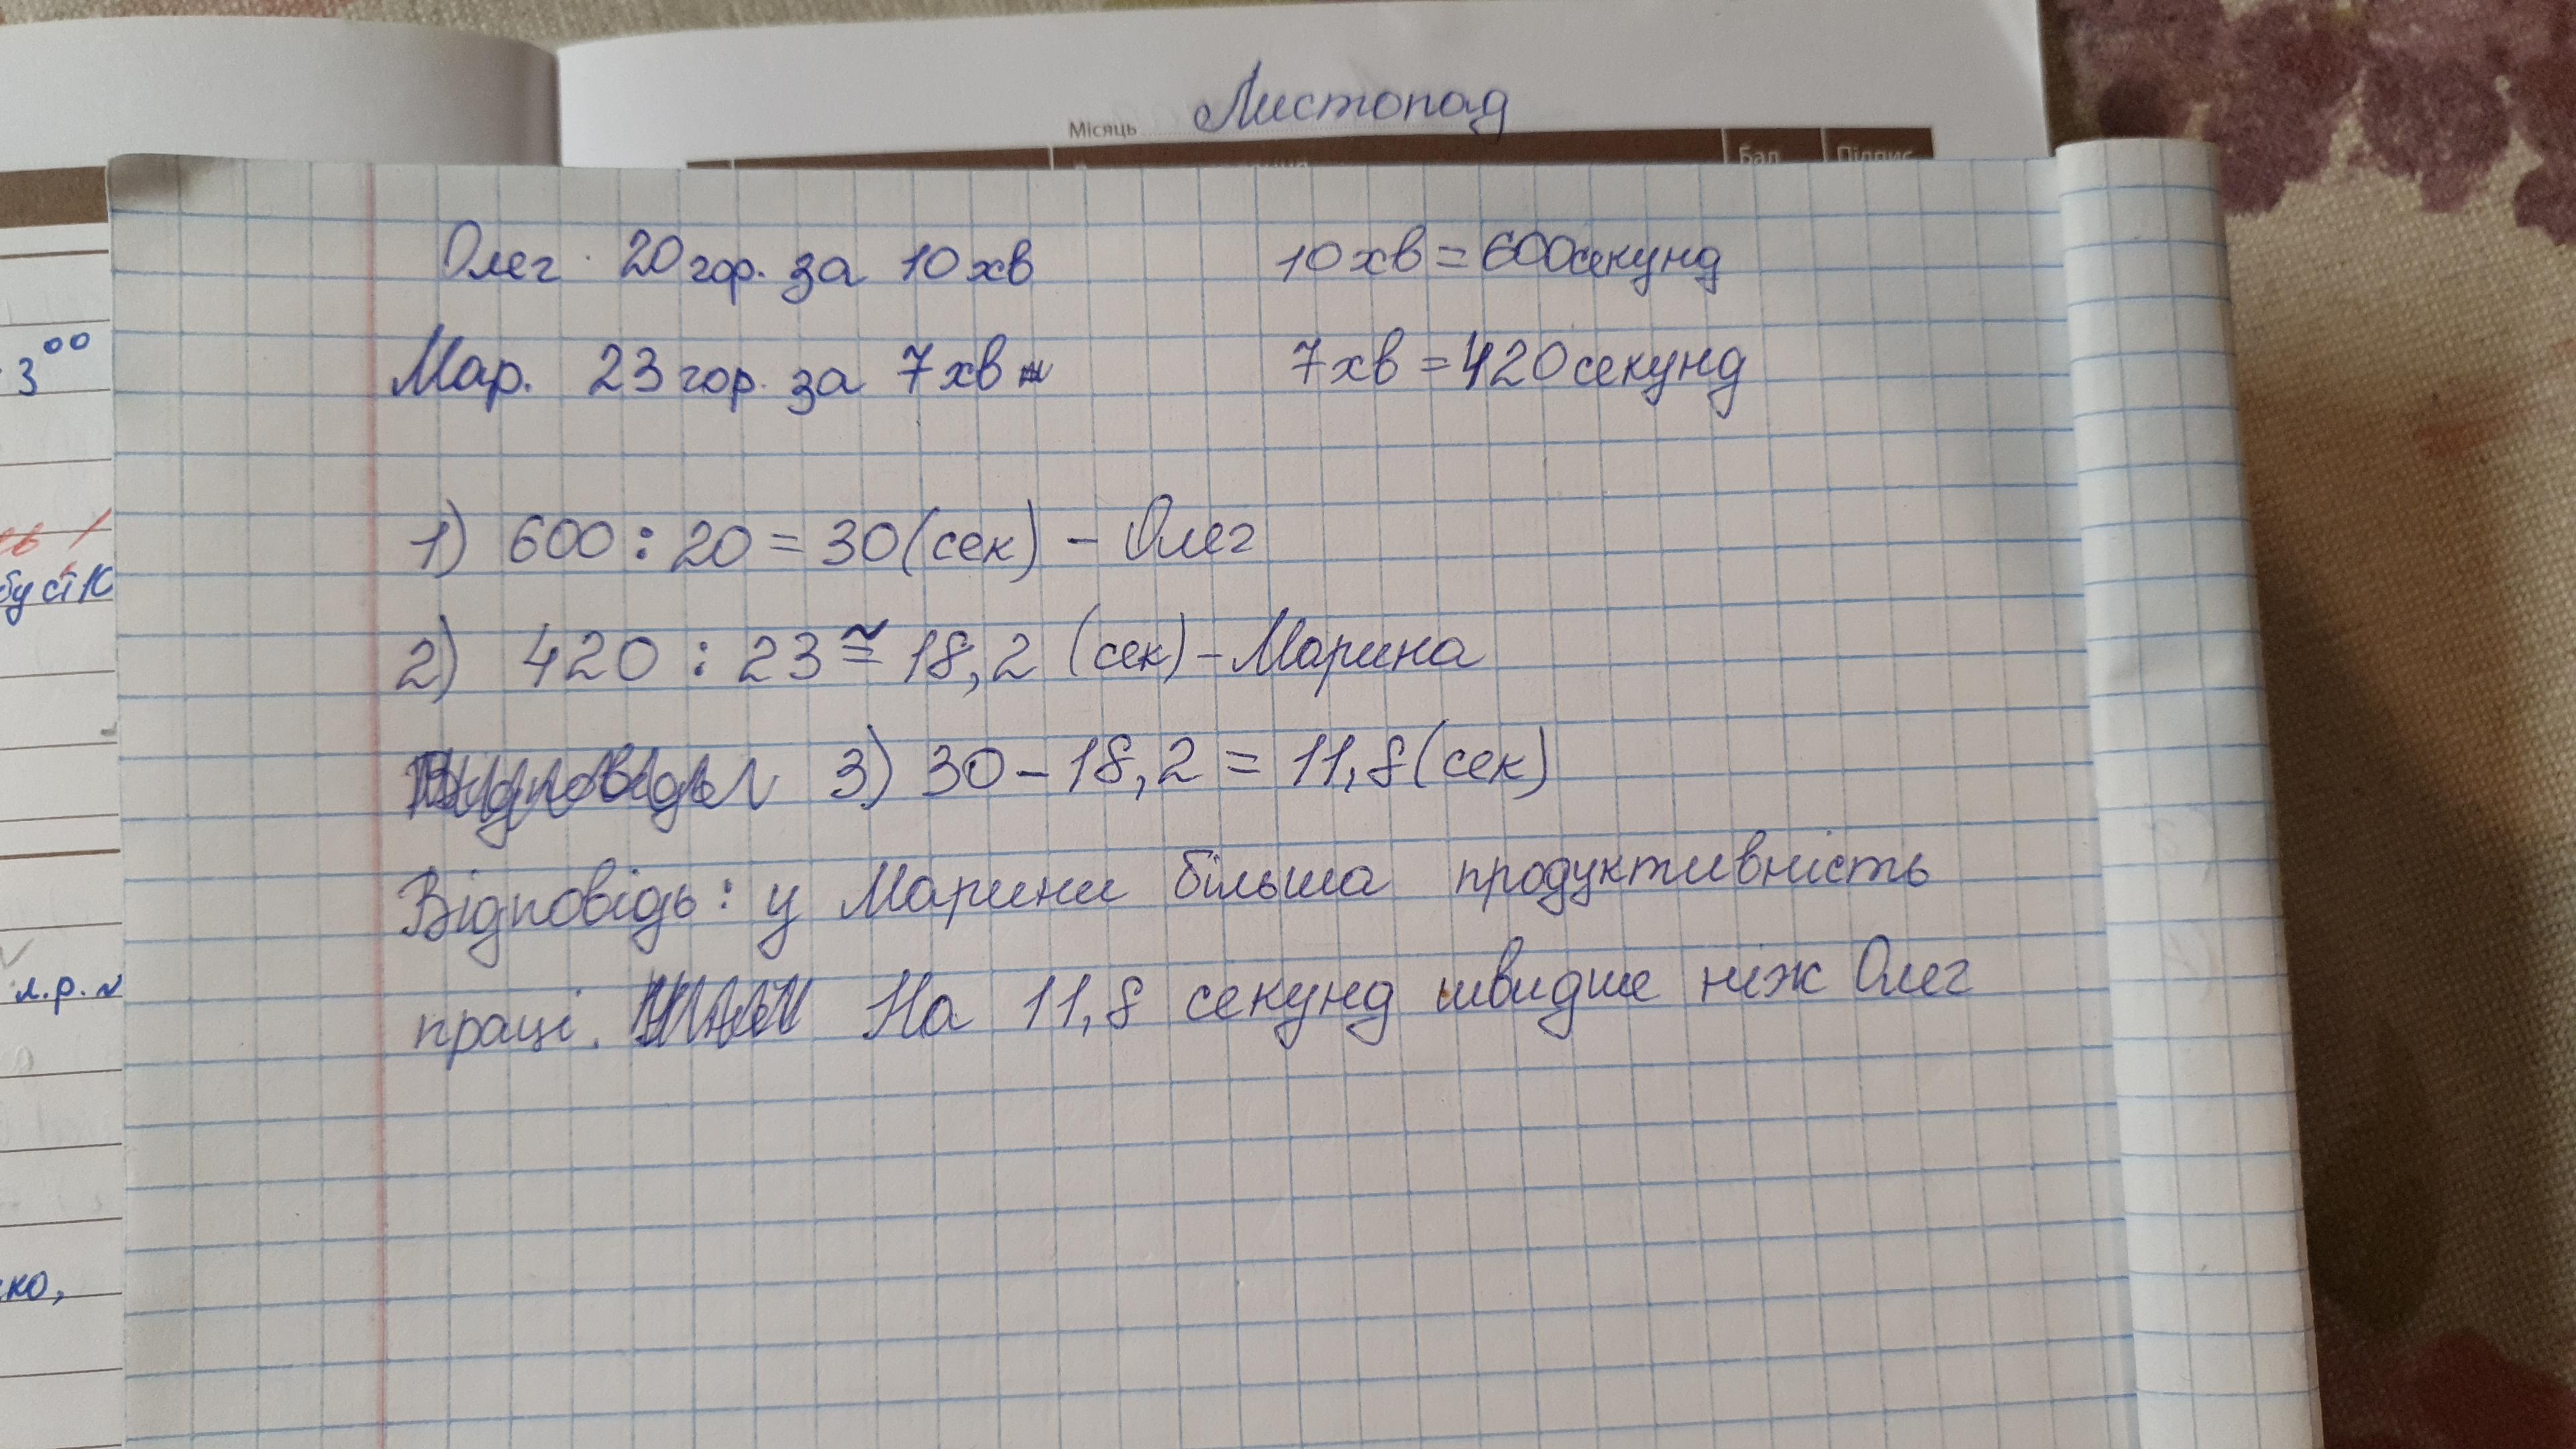 Листопад
Місяць
Бал Підпис
Олег 20 гор. за 10 хв 10 хв = 600 секунд
Мар. 23 гор. за 7 хв 7 хв = 420 секунд
3⁰⁰
1) 600 : 20 = 30 (сек) - Олег
2) 420 : 23 ≅ 18,2 (сек) - Марина
3) 30 - 18,2 = 11,8 (сек)
Відповідь: у Марини більша продуктивність
праці. На 11,8 секунд швидше ніж Олег
л.р.